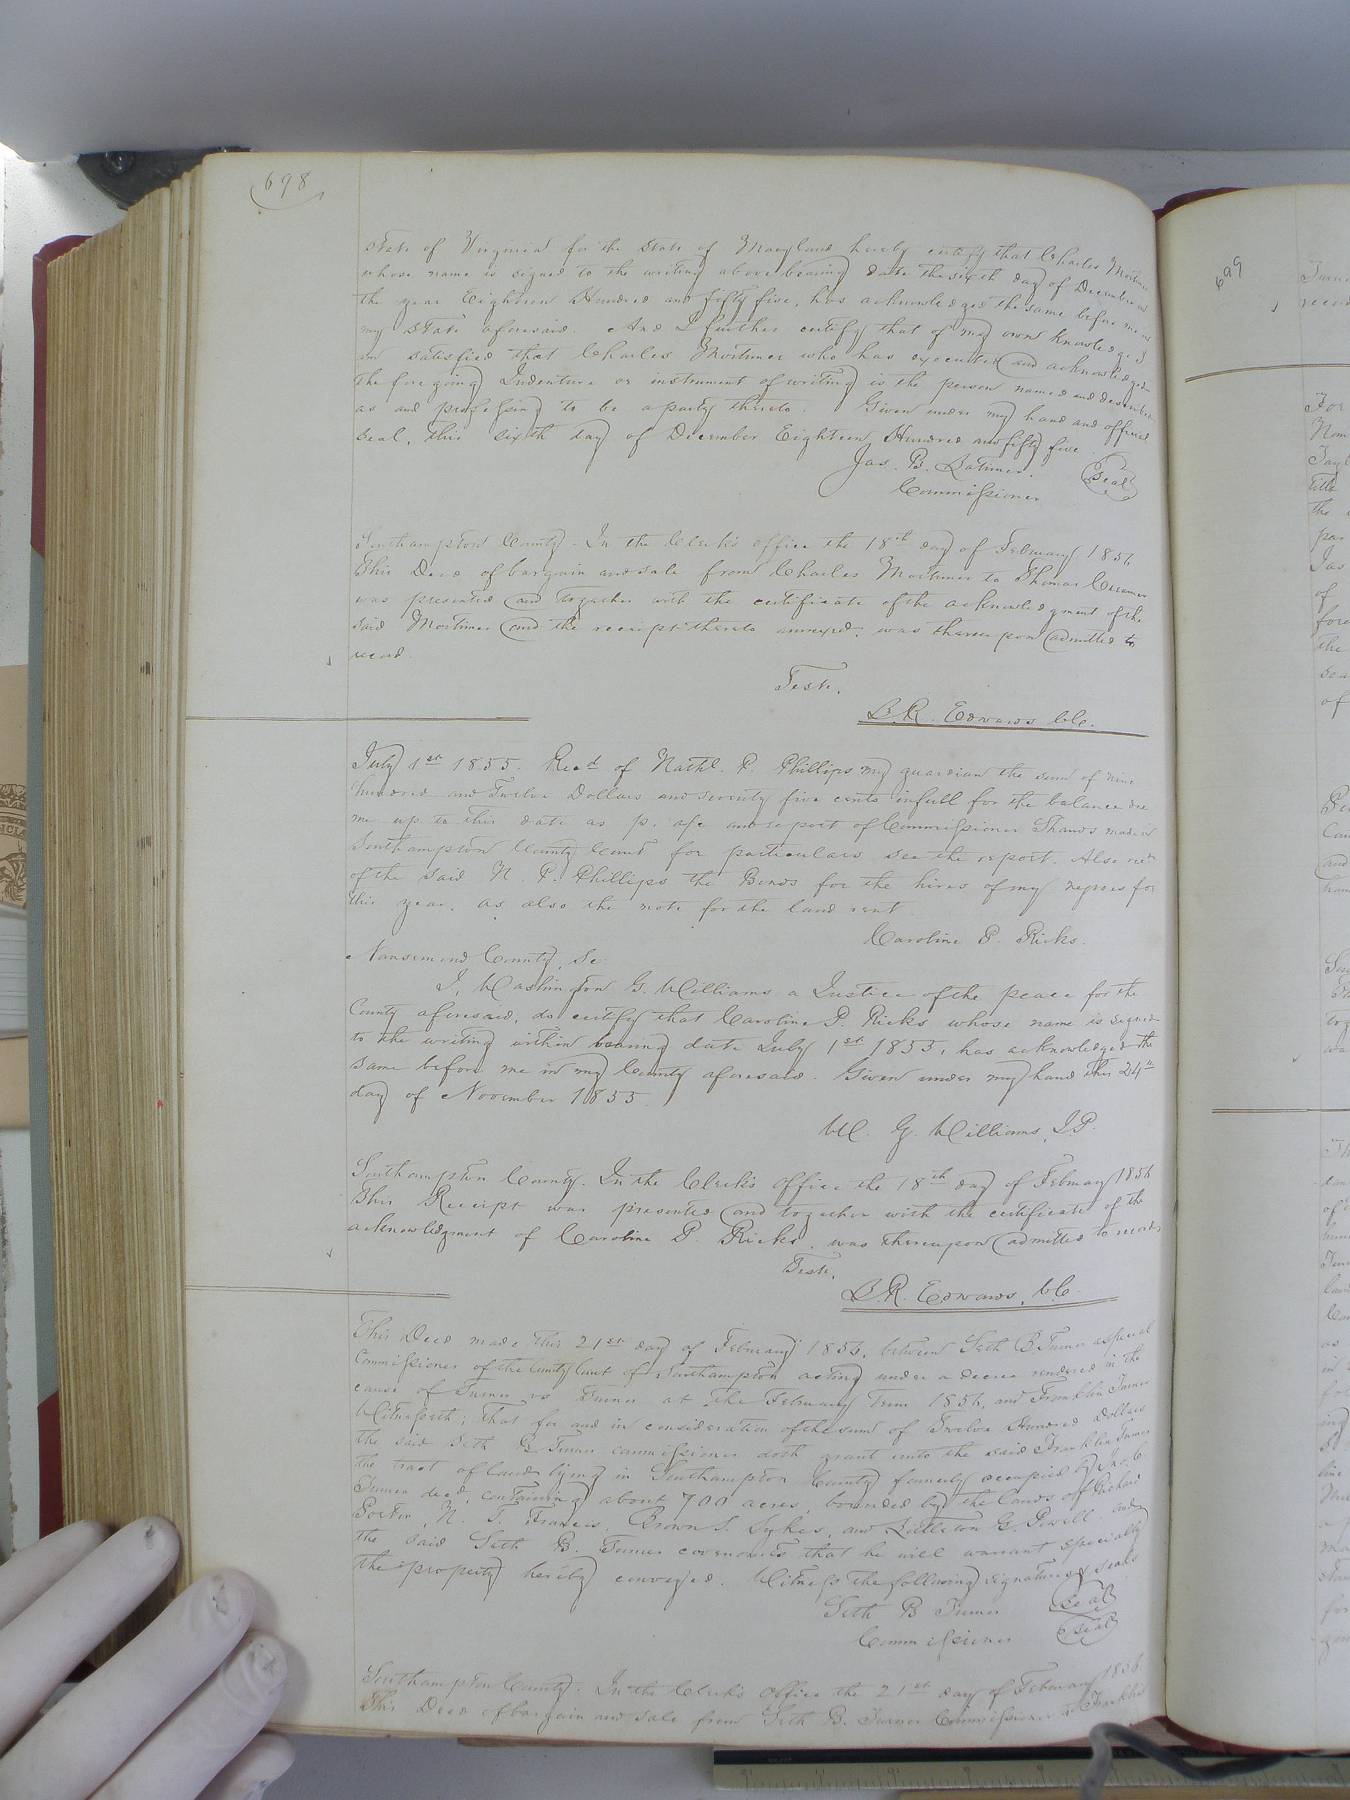 698
State of Virginia for the State of Maryland hereby certify that Charles Mortimer
whose name is signed to the writing above bearing date the sixth day of December in
the year Eighteen Hundred and fifty five, has acknowledged the same before me in
my State aforesaid. And I further certify that of my own knowledge I
am satisfied that Charles Mortimer who has executed and acknowledged
the foregoing Indenture or instrument of writing is the person named and described
as and professing to be a party thereto. Given under my hand and official
seal, this sixth day of December Eighteen Hundred and fifty five.
Jas. B. Latimer. Seal
Commissioner
Southampton County. In the Clerk's office the 18th day of February 1856
This Deed of bargain and sale from Charles Mortimer to Thomas
was presented and together with the certificate of the acknowledgment of the
said Mortimer and the receipt thereto annexed, was thereupon admitted to
record.
Teste.
L. R. Edwards CC.
July 1st 1855. Recd of Nathl. P. Phillips my guardian the sum of nine
hundred and Twelve Dollars and seventy five cents in full for the balance due
me up to this date as p. a/c and report of Commissioner Shands made in
Southampton County Court for particulars see the report. Also recd
of the said N. P. Phillips the Bonds for the hires of my negroes for
this year, as also the note for the land rent
Caroline P. Ricks.
Nansemond County, Sc.
I, Washington G. Williams a Justice of the peace for the
County aforesaid, do certify that Caroline P. Ricks whose name is signed
to the writing within bearing date July 1st 1855, has acknowledged the
same before me in my County aforesaid. Given under my hand this 24th
day of November 1855.
W. G. Williams, J.P.
Southampton County. In the Clerk's Office the 18th day of February 1856
This Receipt was presented and together with the certificate of the
acknowledgment of Caroline P. Ricks, was thereupon admitted to record
Teste.
L. R. Edwards, CC.
This Deed made this 21st day of February 1856, between Seth B. Turner a special
Commissioner of the County Court of Southampton acting under a decree rendered in the
cause of Turner vs Turner at the February Term 1856, and Franklin Turner
Witnesseth; that for and in consideration of the sum of Twelve Hundred Dollars
the said Seth B. Turner commissioner doth grant unto the said Franklin Turner
the tract of land lying in Southampton County formerly occupied by
Turner decd, containing about 700 acres, bounded by the lands of
Porter, N. T. Francis, Brown S. Sykes, and Littleton G. Powell and
the said Seth B. Turner covenants that he will warrant specially
the property hereby conveyed. Witness the following signature & seals
Seth B Turner Seal
Commissioner Seal
Southampton County. In the Clerk's Office the 21st day of February 1856.
This Deed of bargain and sale from Seth B. Turner Commissioner to Franklin
699